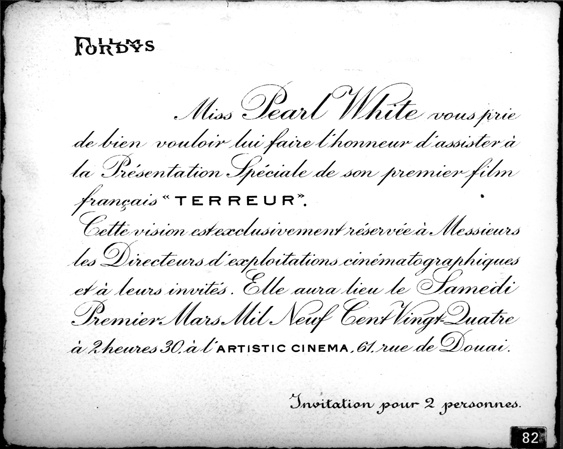 FILMS
FORDYS
Miss Pearl White vous prie
de bien vouloir lui faire l'honneur d'assister à
la Présentation Spéciale de son premier film
français "TERREUR".
Cette vision est exclusivement réservée à Messieurs
les Directeurs d'exploitations cinématographiques
et à leurs invités. Elle aura lieu le Samedi
Premier Mars Mil Neuf Cent Vingt Quatre
à 2 heures 30, à l'ARTISTIC CINEMA, 61, rue de Douai.
Invitation pour 2 personnes.
82